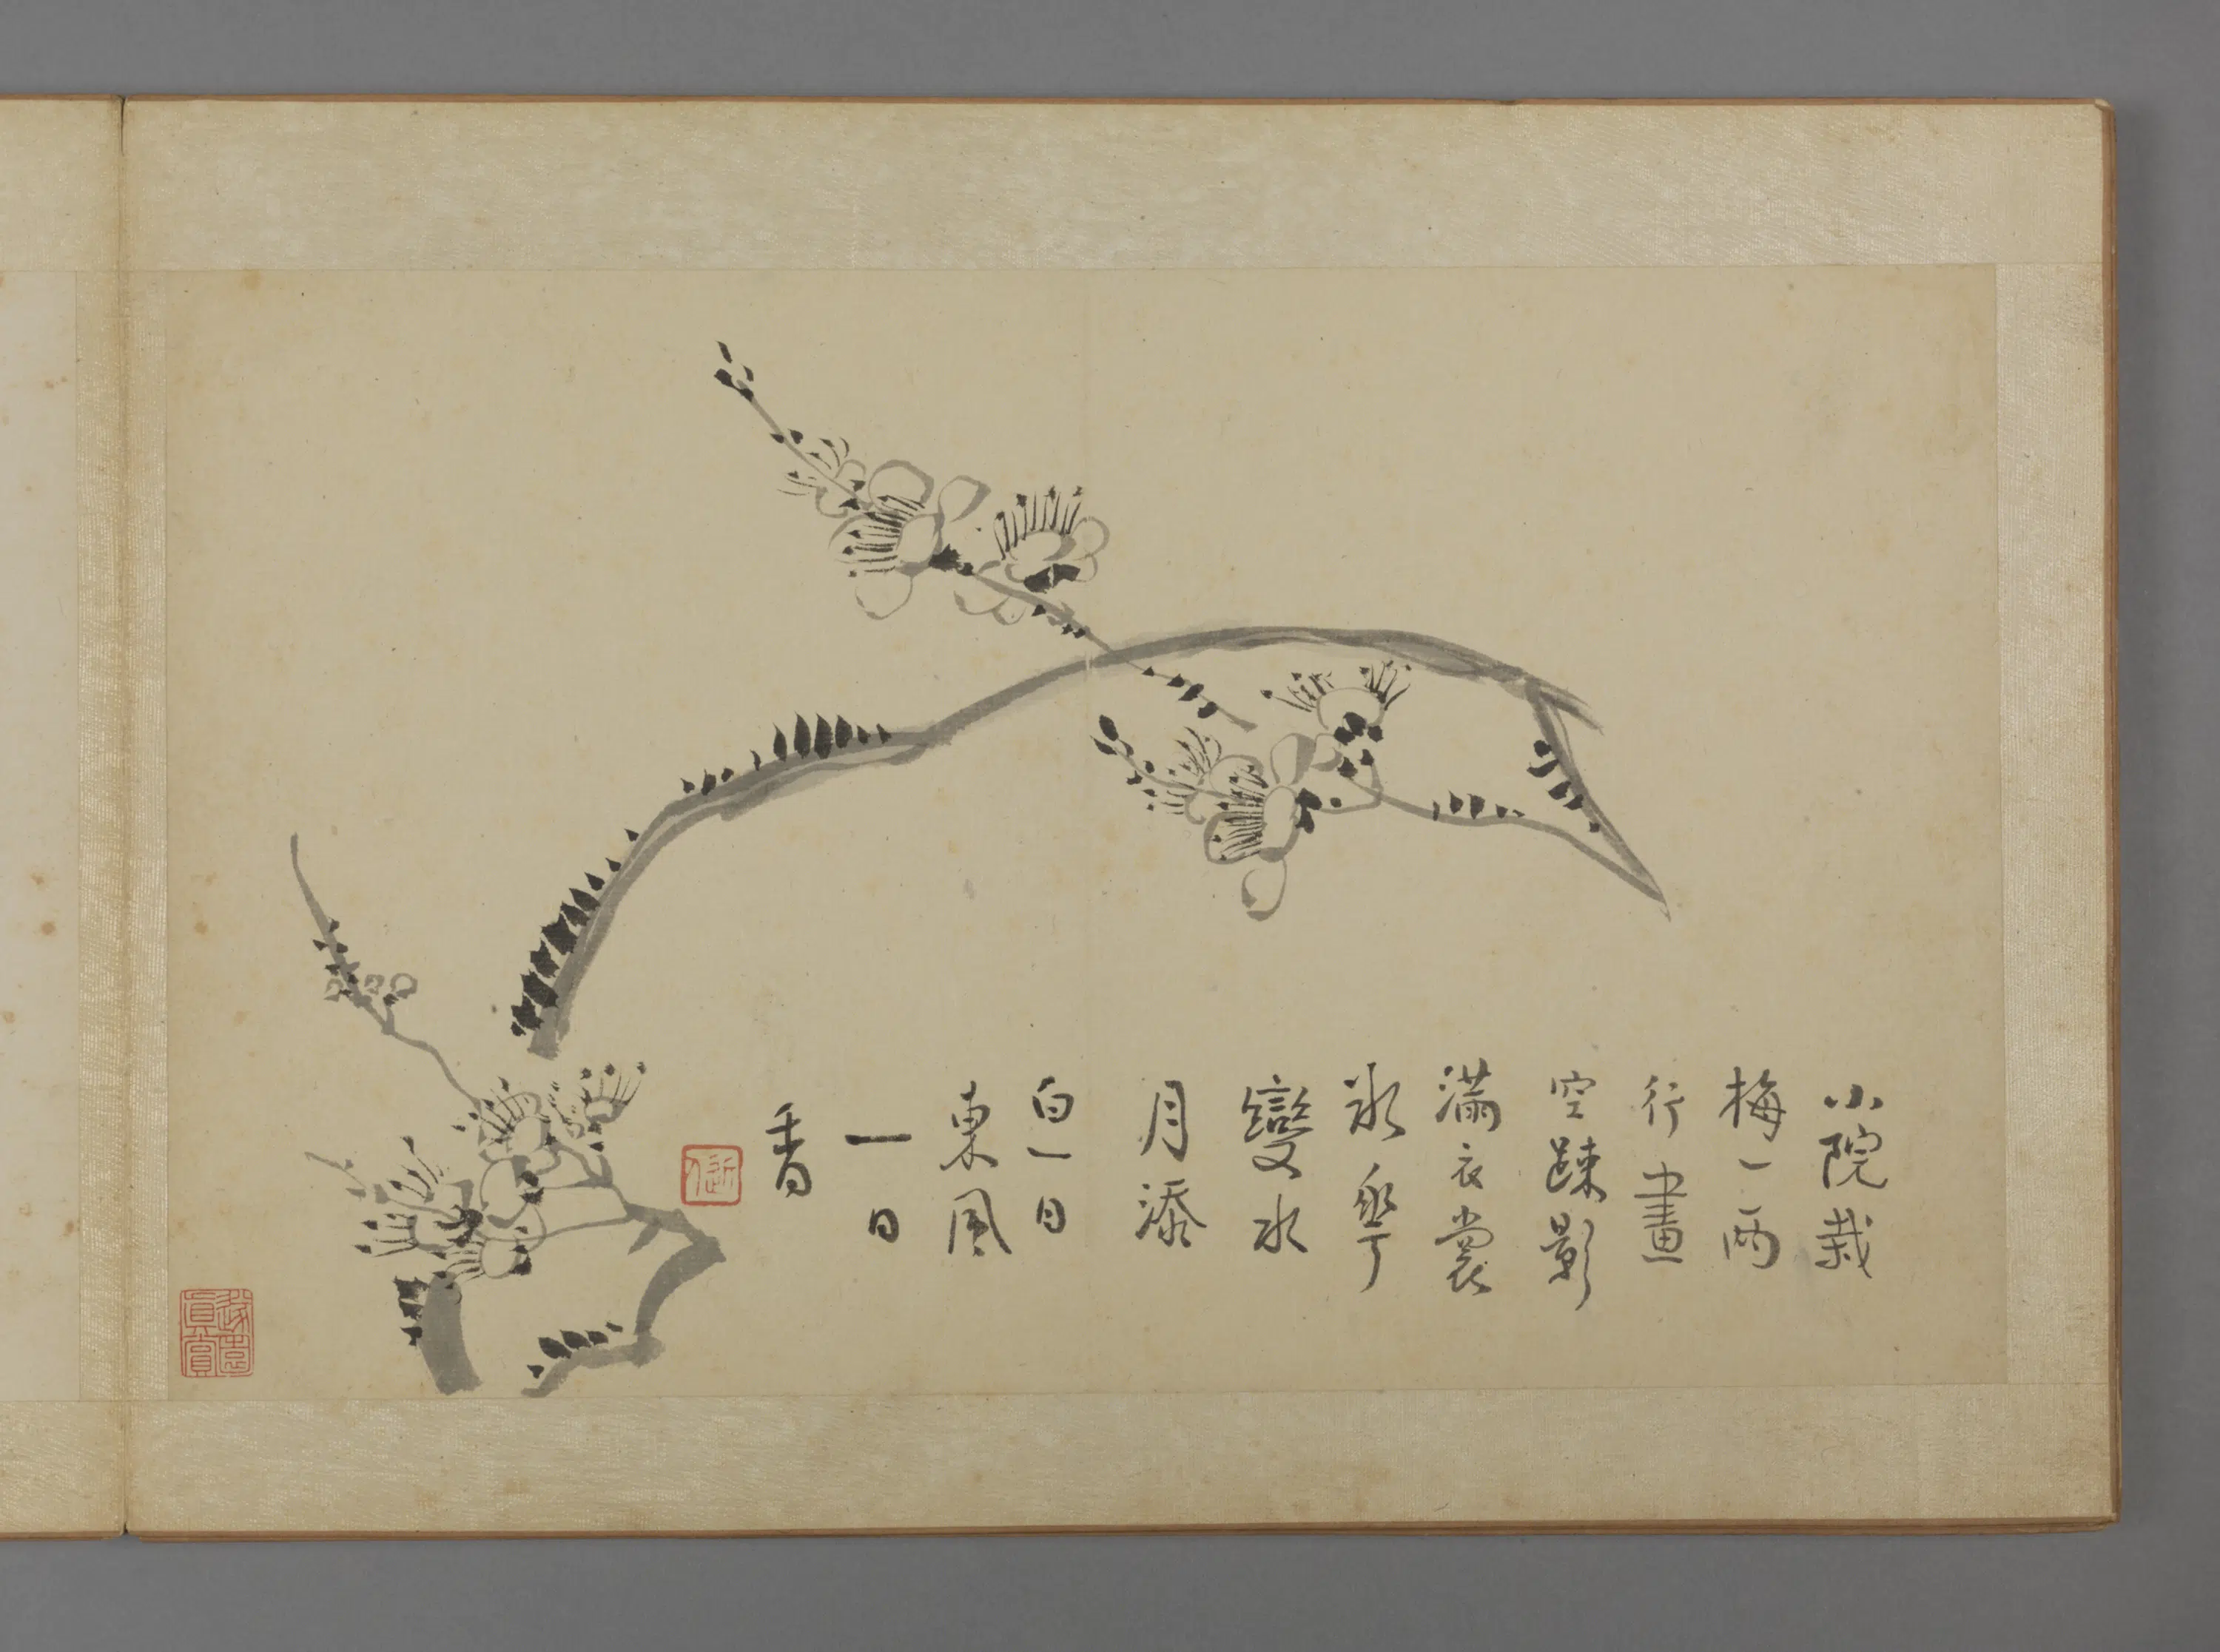 小院栽
梅一兩
行畫
空踈影
滿衣裳
氷華
變水
月添
白一日
東風
一日
香